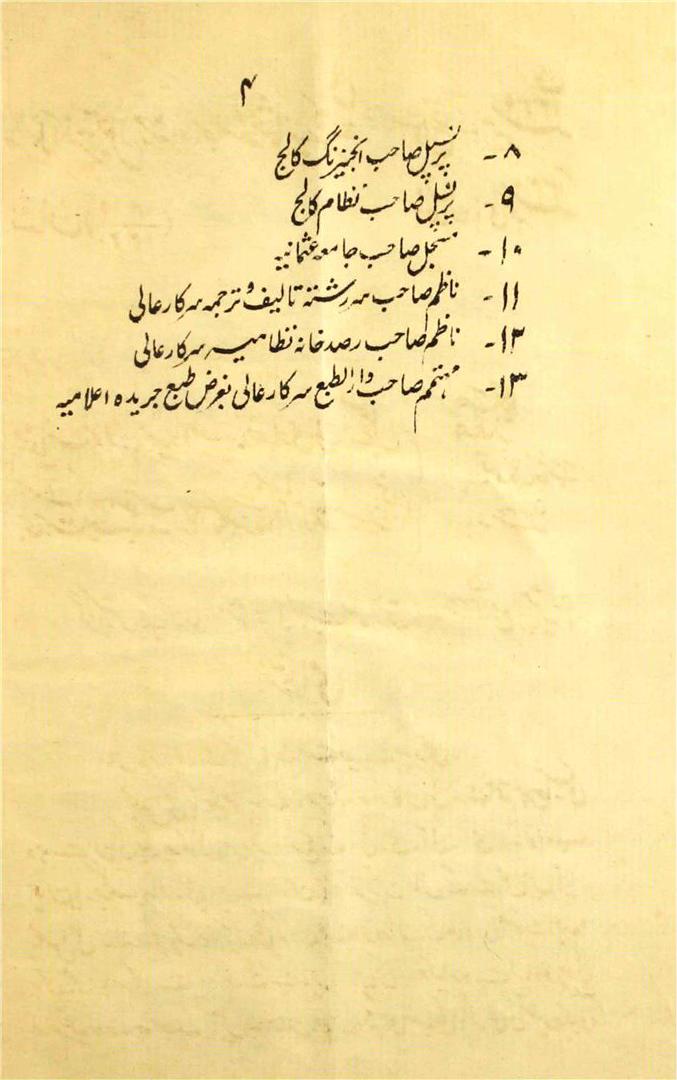 ۴
۸- پرنسپل صاحب انجنیرنگ کالج
۹- پرنسپل صاحب نظام کالج
۱۰- مسجل صاحب جامعہ عثمانیہ
۱۱- ناظم صاحب سررشتہ تالیف و ترجمہ سرکارعالی
۱۲- ناظم صاحب رصدخانہ نظامیہ سرکارعالی
۱۳- مہتمم صاحب دارالطبع سرکارعالی بغرض طبع جریدہ اعلامیہ